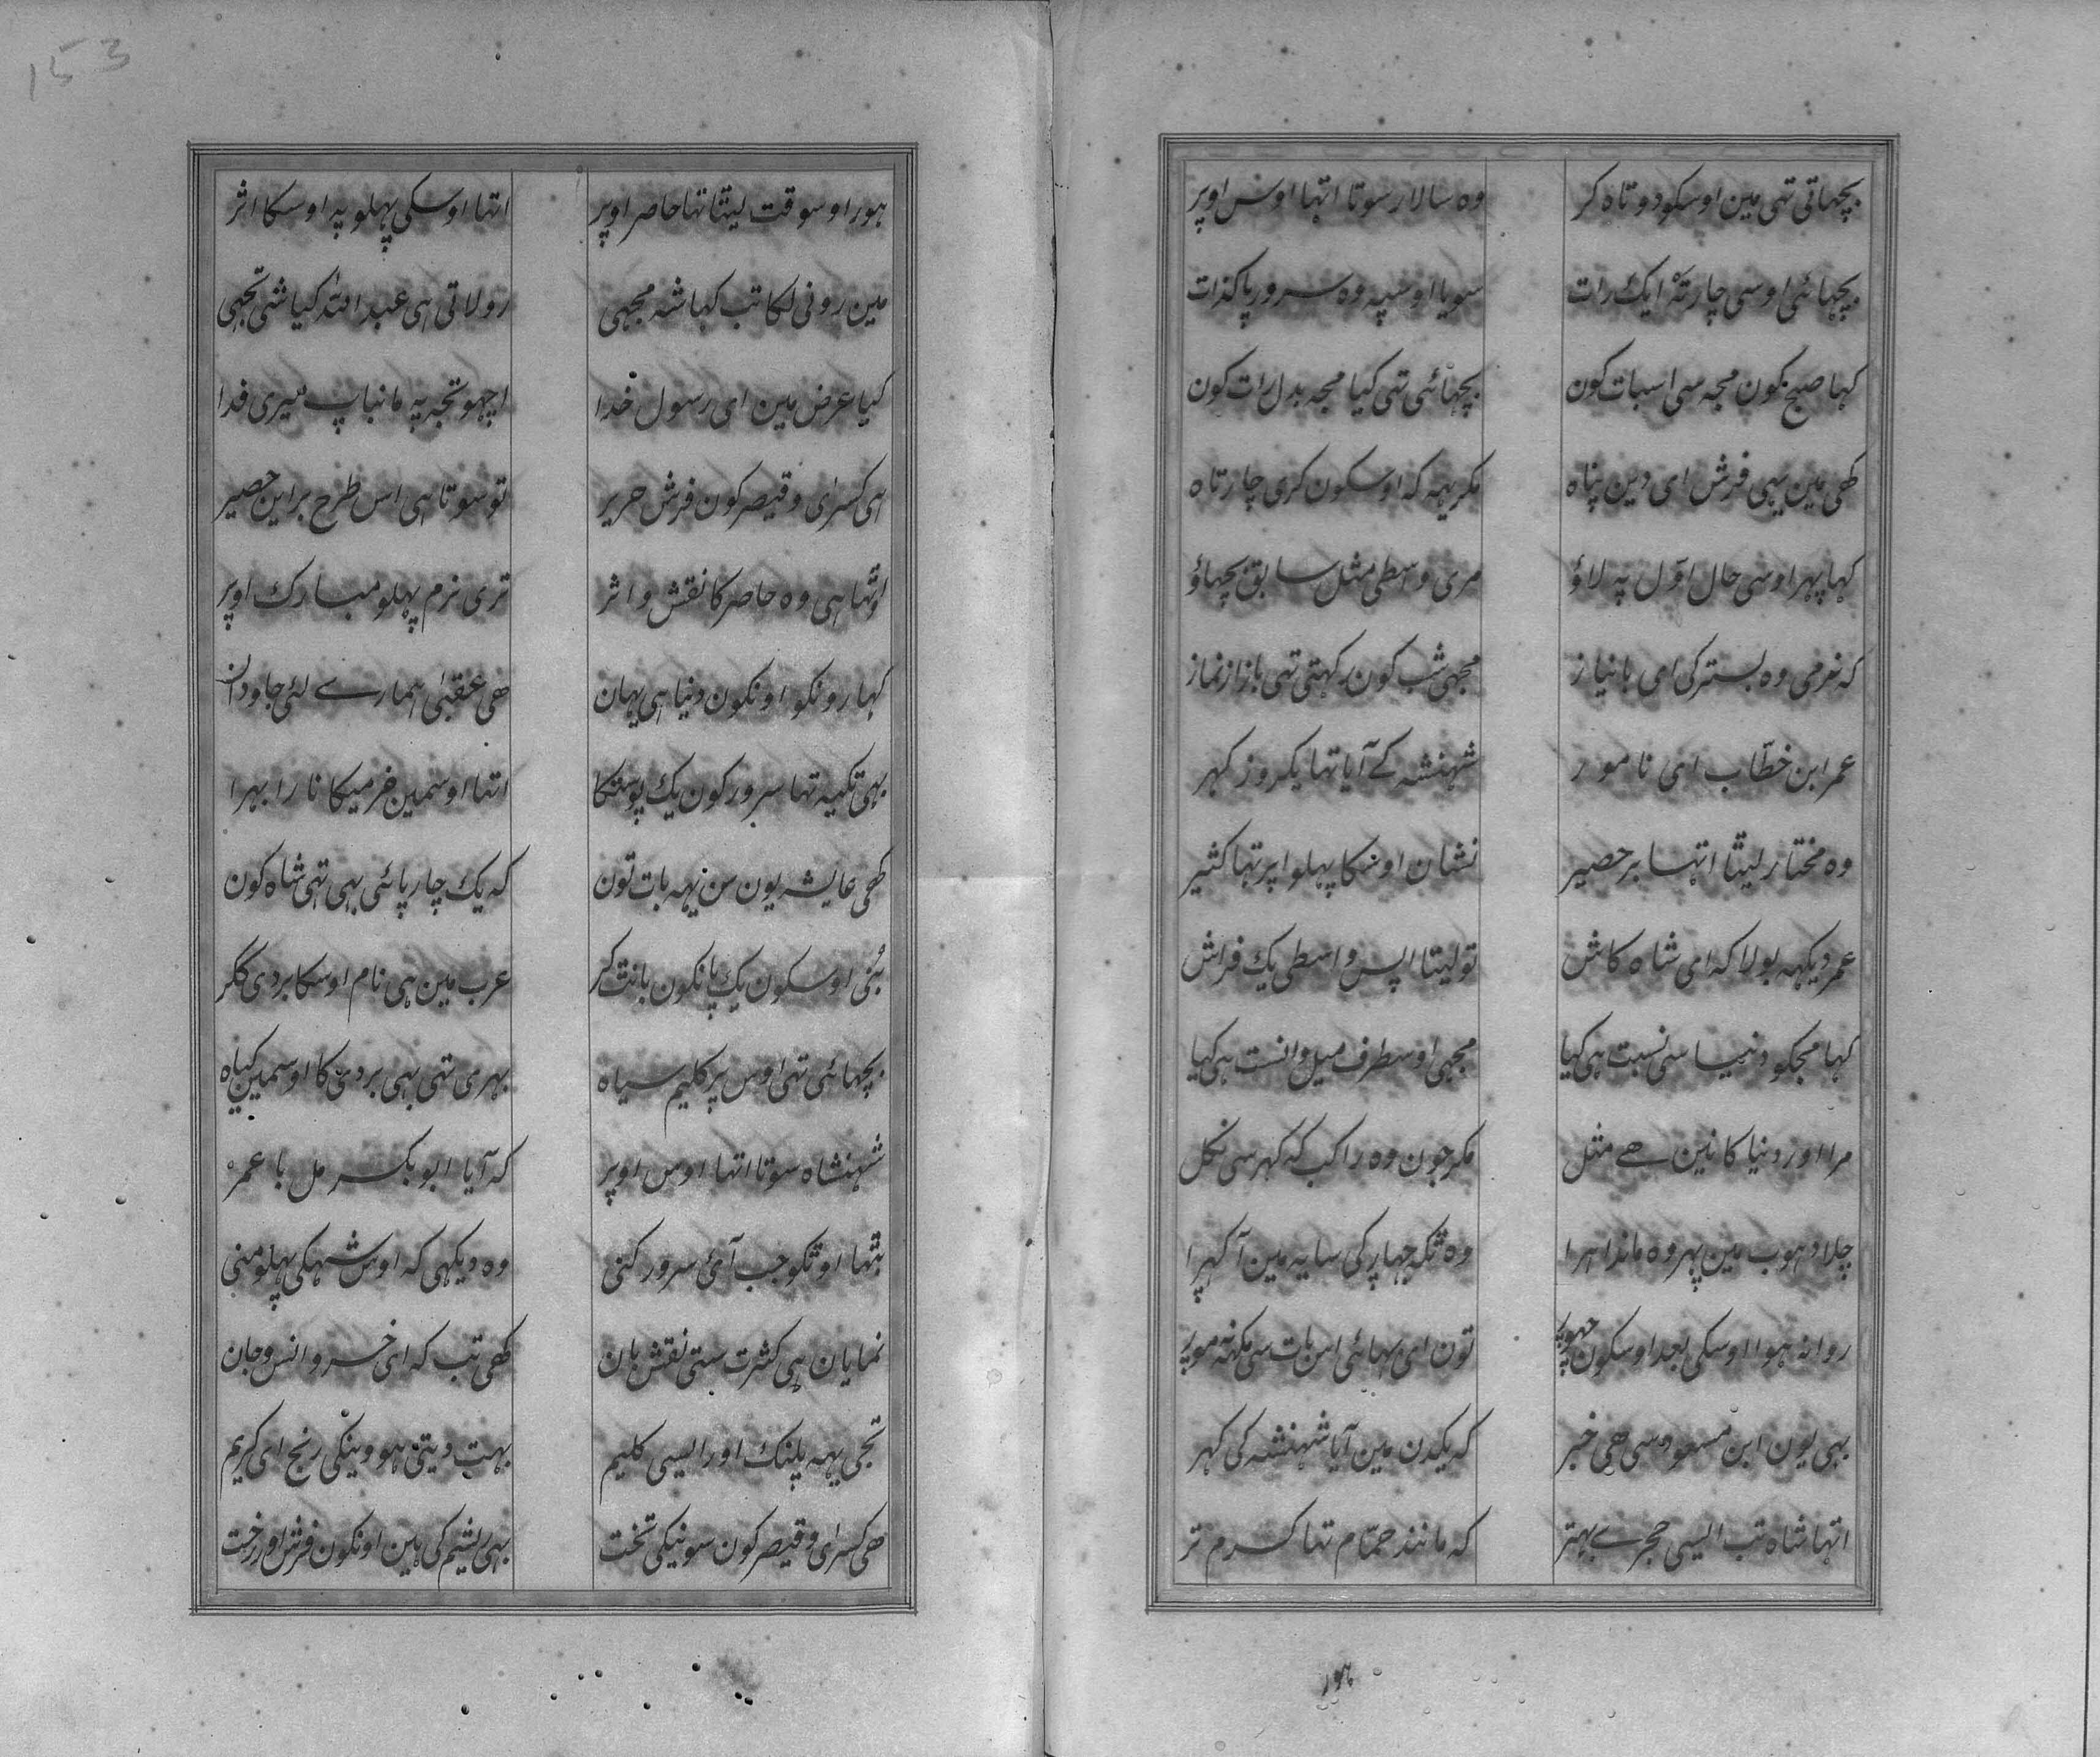 بچہاتی تہی مین اوسکو دوتاہ کر وہ سالار سوتا اتہا اوس اوپر
بچہائی اوسی چارتہ ایک رات سویا اوسپہ وہ سرور پاکذات
کہا صبح کون مجہ سی اسبات کون بچہائی تہی کیا مجہ بدل رات کون
کھی مین یہی فرش ای دین پناہ مکر یہہ کہ اوسکون کری چارتاہ
کہا پہر اوسی حال اوّل پہ لاؤ مری واسطی مثل سابق بچہاؤ
کہ نرمی وہ بستر کی ای بانیاز مجہی شب کون رکہتی تہی باز از نماز
عمر ابن خطّاب ای نامور شہنشہ کے آیا تہا یکروز کہر
وہ مختار لیتا اتہا بر حصیر نشان اوسکا پہلو اپر تہا کثیر
عمر دیکہہ بولا کہ ای شاہ کاش تو لیتا اپس واسطی یک فراش
کہا مجکو دنیا سی نسبت ہی کیا مجہی اوسطرف میل وانست ہی کیا
مرا اور دنیا کا نین ھے مثل مکر جون وہ راکب کہ کہر سی نکل
چلا دہوب مین پہر وہ ماندا ہرا وہ ٹک جہاڑ کی سایہ مین آ کہڑا
روانہ ہوا اوسکی بعد اوسکون چہوڑ تون ای بہائی اس بات سی مکہ نہ موڑ
بہی یون ابن مسعود سی ھی خبر کہ یکدن مین آیا شہنشہ کی کہر
اتہا شاہ تب ایسی حجرے بہتر کہ مانند حمّام تہا کرم تر
ہور
153
ہور اوسوقت لیتا تہا حاصر اوپر اتہا اوسکی پہلو پہ اوسکا اثر
مین رونی لکا تب کہا شہ مجہی رولاتی ہی عبد اللہ کیا شی تجہی
کیا عرض مین ای رسول خدا اچہو تجہ پہ مانباپ میری فدا
ہی کسرای وقیصر کون فرش حریر تو سوتا ہی اس طرح بر این حصیر
اوٹہا ہی وہ حاصر کا نقش و اثر تری نرم پہلو مبارک اوپر
کہا رو نکو اونکون دنیا ہی یہان ھی عقبیٰ ہمارے لئی جاودان
بہی تکیہ تہا سرور کون یک پوستکا اتہا اوسمین خرمیکا نارا بہرا
کھی عایشہ یون سن یہہ بات تون کہ یک چارپائی بہی تہی شاہ کون
بنی اوسکون یک پانکون بانت کر عرب مین ہی نام اوسکا بردی مکر
بچہائی تہی اوس پر کلیم سیاہ بہری تہی بہی بردی کا اوسمین کیاہ
شہنشاہ سوتا اتہا اوس اوپر کہ آیا ابوبکر مل با عمر
بٹہا اوٹکو جب آئ سرور کنی وہ دیکہی کہ اوس شہکی پہلو منی
نمایان ہی کثرت ستی نقش بان کھی تب کہ ای خسرو انس وجان
تجی یہہ پلنک اور ایسی کلیم بہت دیتی ہووینکی رنج ای کریم
ھی کسرای وقیصر کون سونیکی تخت بہی ریشم کی ہین اونکون فرش اور رخت